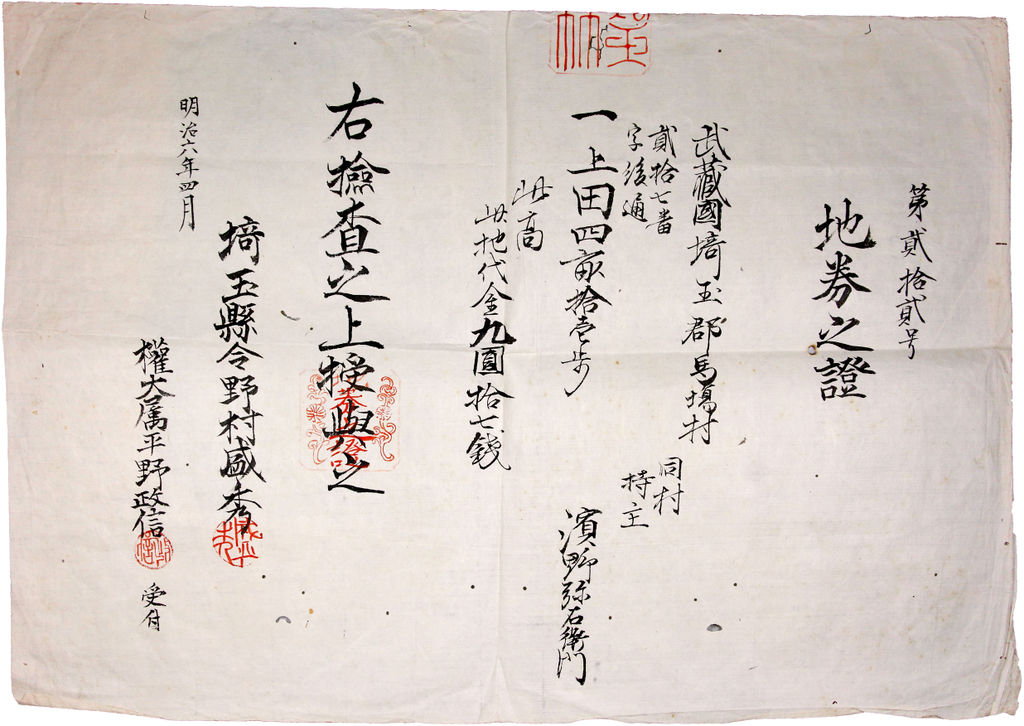 第貳拾貳号
地券之證
武藏國埼玉郡馬場村
貳拾七番
字後通
同村
持主
一上田四畝拾壱歩
濱野弥右衛門
此高
此地代金九圓拾七錢
右撿査之上授與之
埼玉縣令野村盛秀
明治六年四月
權大属平野政信
受付